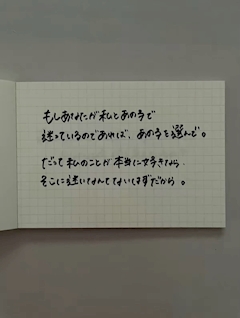 もしあなたが私とあの子で
迷っているのであれば、あの子を選んで。
だって私のことが本当に好きなら
そこに迷いなんてないはずだから。